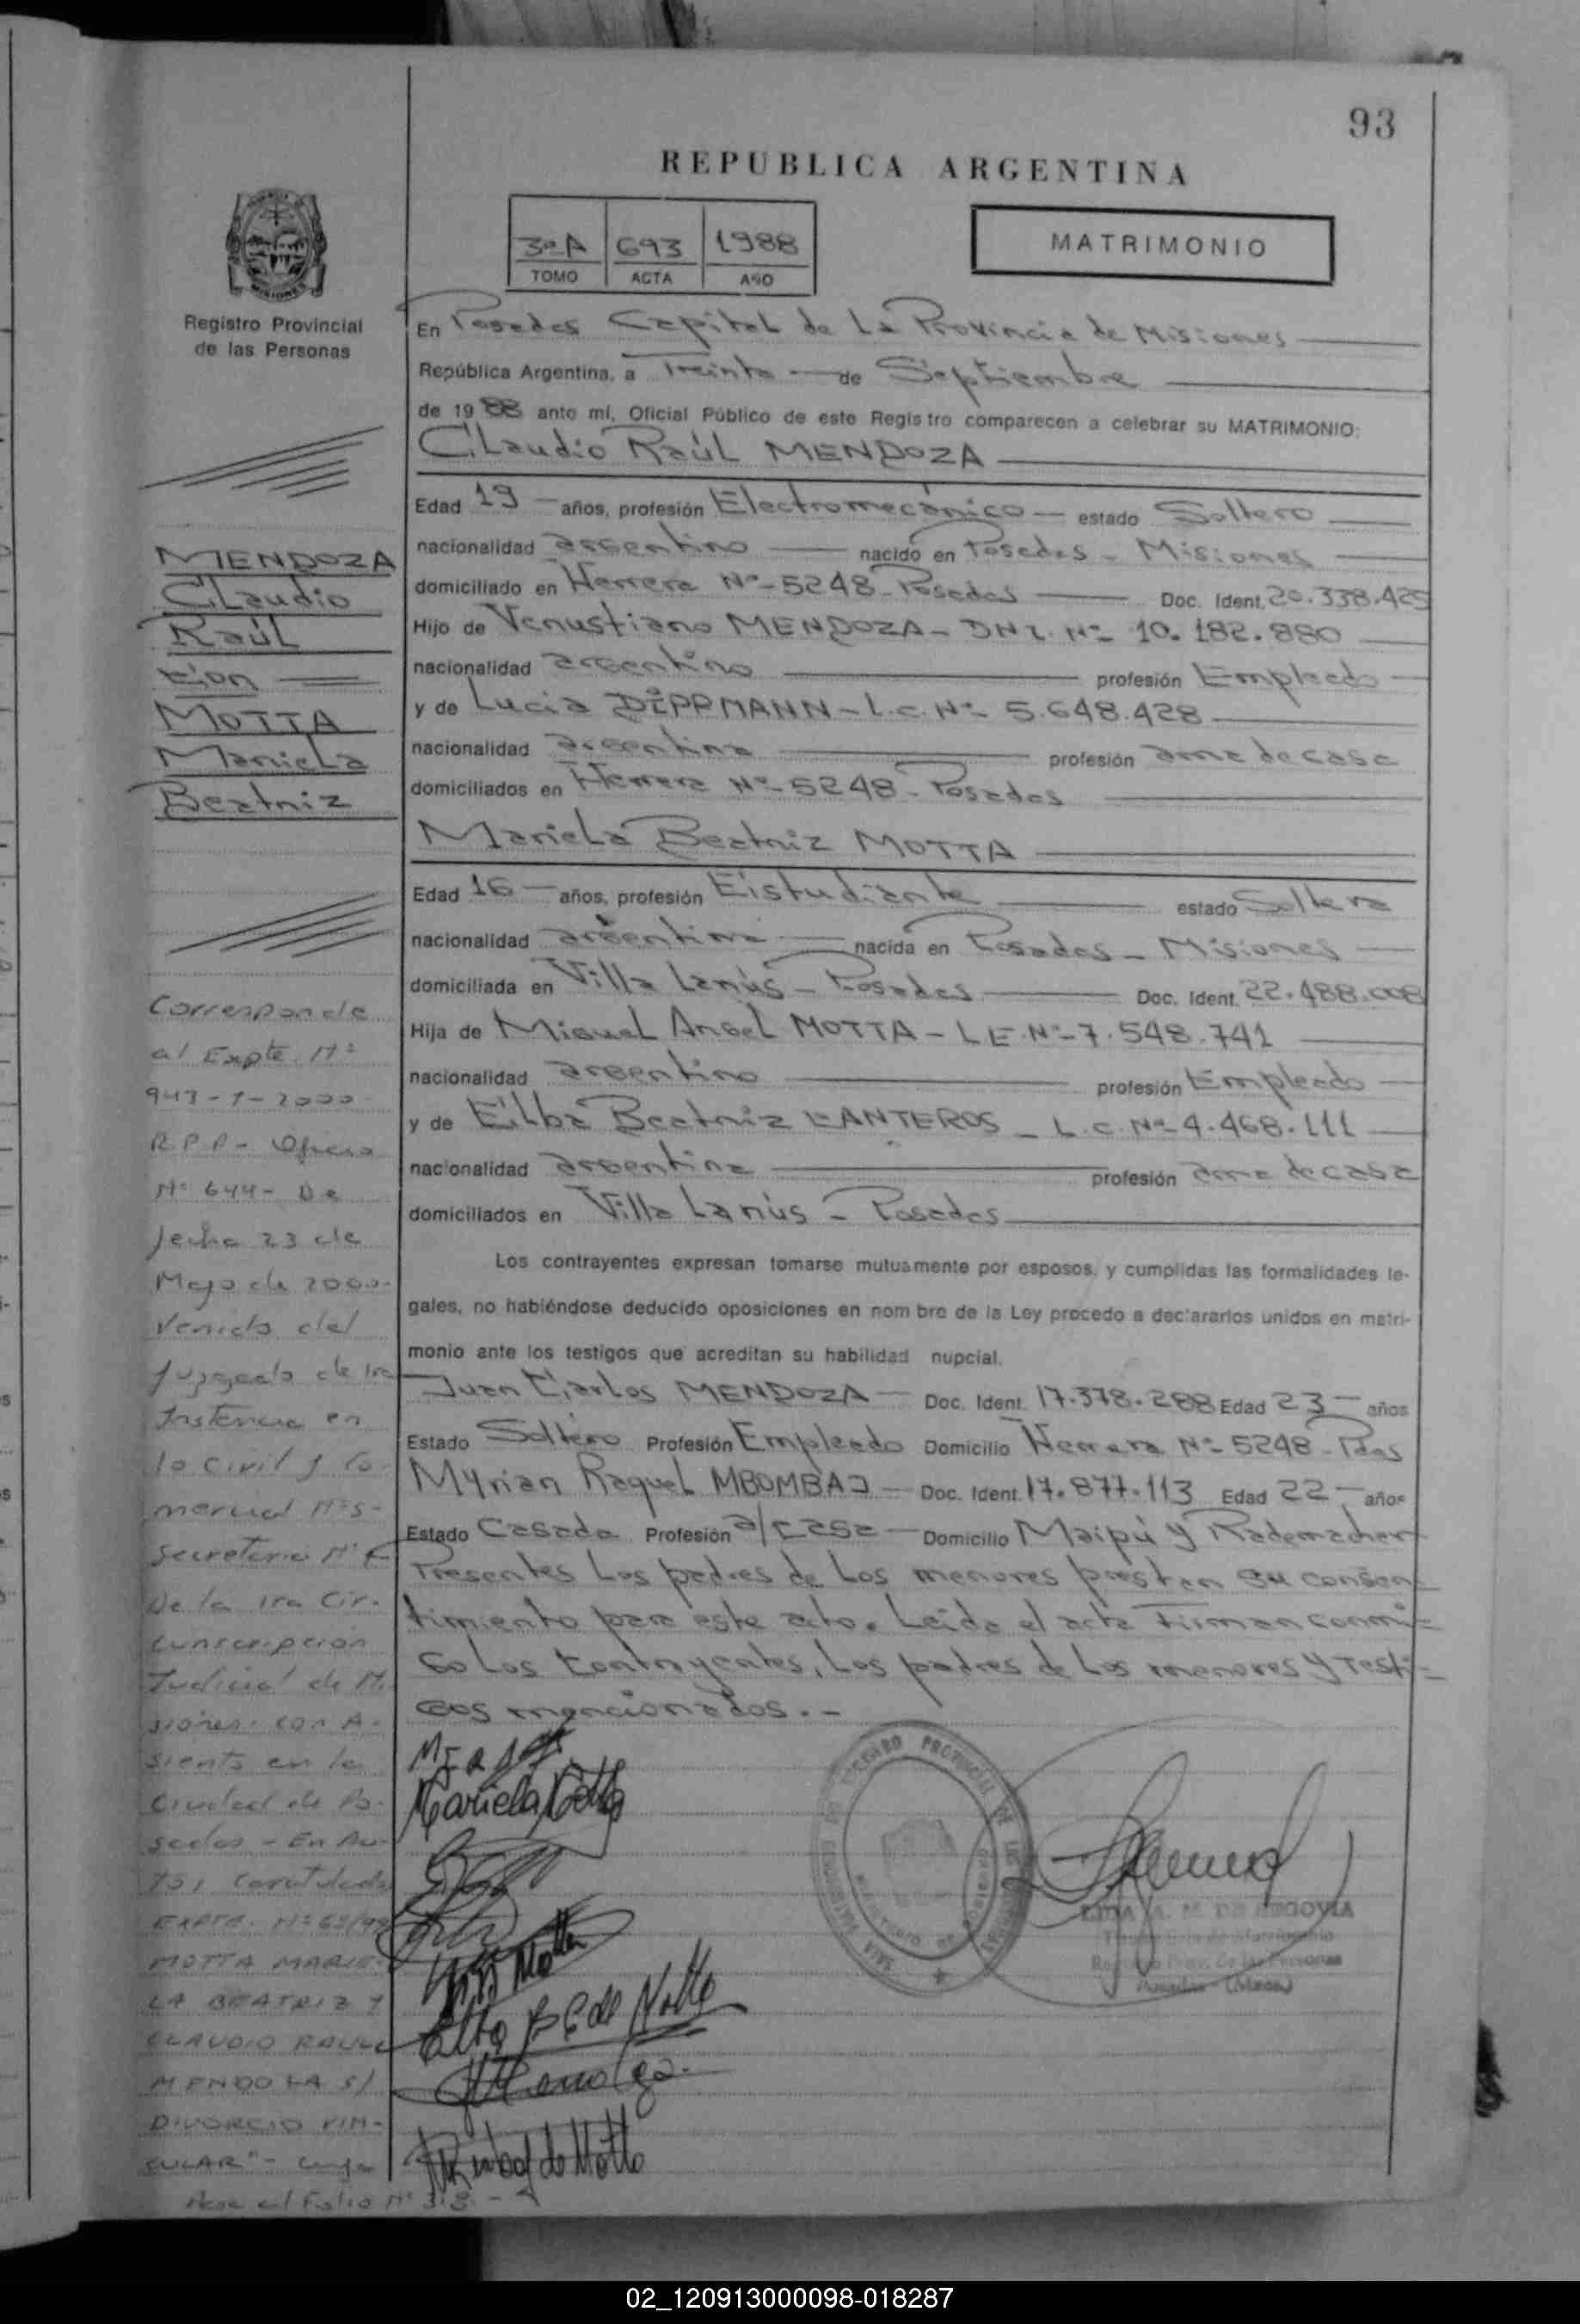 93
REPUBLICA ARGENTINA
3º A 693 1988
TOMO ACTA AÑO
MATRIMONIO
MISIONES
Registro Provincial
de las Personas
En Posadas Capital de La Provincia de Misiones
República Argentina, a Treinta de Septiembre
de 1988 ante mí, Oficial Público de este Registro comparecen a celebrar su MATRIMONIO:
Claudio Raúl MENDOZA
Edad 19 años, profesión Electromecánico estado Soltero
nacionalidad argentino nacido en Posadas - Misiones
domiciliado en Herrera Nº 5248 - Posadas Doc. Ident. 20.338.425
Hijo de Venustiano MENDOZA - DNI. Nº 10.182.880
nacionalidad argentino profesión Empleado
y de Lucia DIPPMANN - L.C. Nº 5.648.428
nacionalidad argentina profesión ama de casa
domiciliados en Herrera Nº 5248 - Posadas
Mariela Beatriz MOTTA
Edad 16 años, profesión Estudiante estado Soltera
nacionalidad argentina nacida en Posadas - Misiones
domiciliada en Villa Lanús - Posadas Doc. Ident. 22.488.008
Hija de Miguel Angel MOTTA - L E. Nº 7.548.741
nacionalidad argentino profesión Empleado
y de Elba Beatriz CANTEROS - L.C. Nº 4.468.111
nacionalidad argentina profesión ama de casa
domiciliados en Villa Lanús - Posadas
Los contrayentes expresan tomarse mutuamente por esposos, y cumplidas las formalidades le-
gales, no habiéndose deducido oposiciones en nombre de la Ley procedo a declararlos unidos en matri-
monio ante los testigos que acreditan su habilidad nupcial.
Juan Carlos MENDOZA Doc. Ident. 17.378.288 Edad 23 años
Estado Soltero Profesión Empleado Domicilio Herrera Nº 5248 - Pdas
Myrian Raquel MBOMBAJ Doc. Ident. 17.877.113 Edad 22 años
Estado Casada Profesión a/casa Domicilio Maipú y Rademacher
Presentes Los padres de Los menores prestan su consen-
timiento para este acto. Leída el acta Firman conmi-
go Los Contrayentes, Los padres de Los menores y Testi-
gos mencionados. -
MENDOZA
Claudio
Raúl
con
MOTTA
Mariela
Beatriz
Corresponde
al Expte. Nº
943-1-2000
R.P.P - Oficio
Nº 644 - De
fecha 23 de
Mayo de 2000-
Venido del
Juzgado de 1ra
Instancia en
lo Civil y Co-
mercial Nº 5-
Secretaria Nº
De la 1ra Cir-
cunscripción
Judicial de Mi
siones. con A-
siento en la
Ciudad de Po-
sadas - En Au-
tos, Caratulado
EXPTE. Nº 68/99
MOTTA MARIE-
LA BEATRIZ Y
CLAUDIO RAUL
MENDOZA S/
DIVORCIO VIN-
CULAR" - cuya
Pasa al Folio Nº 318 -
Mariela Motta
Elba B C de Motta
de Motta
REGISTRO PROVINCIAL DE LAS PERSONAS
A. M. DE SEGOVIA
Posadas - (Mnes.)
02_120913000098-018287